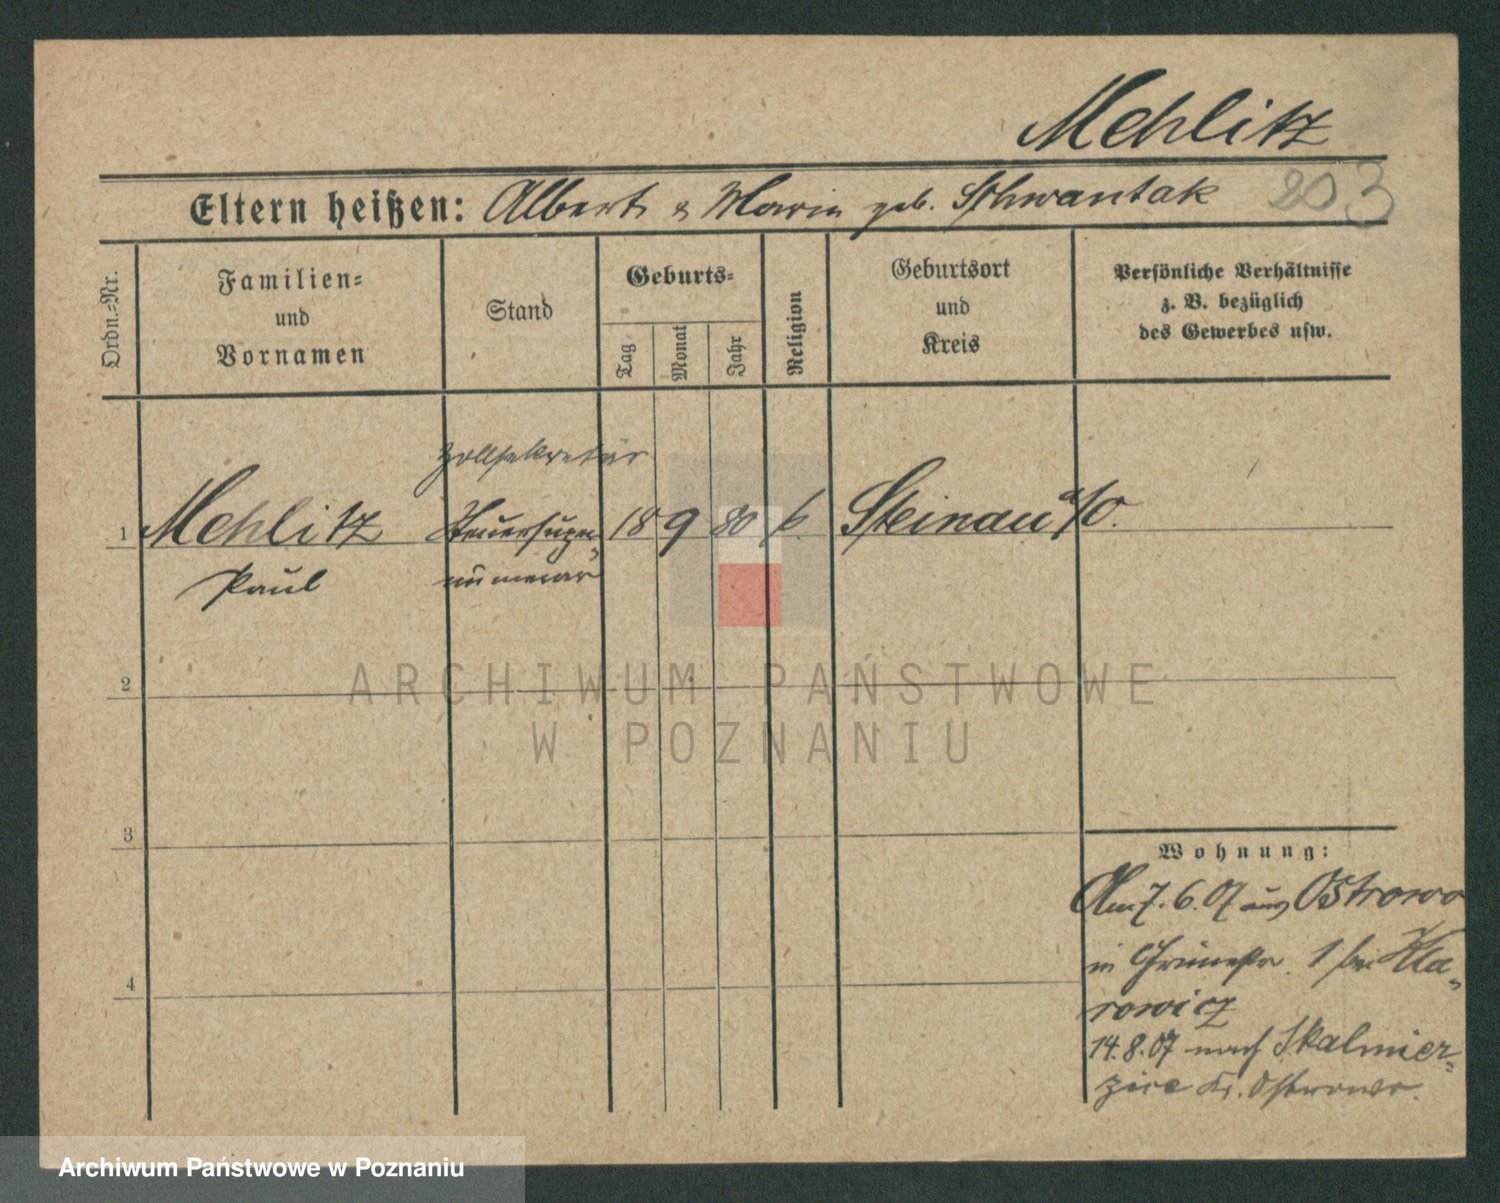 Mehlitz
Eltern heißen: Albert & Maria geb. Schwantak 203
Ordn.-Nr.
Familien-
und
Vornamen
Stand
Geburts-
Tag
Monat
Jahr
Religion
Geburtsort
und
Kreis
Persönliche Verhältnisse
z. B. bezüglich
des Gewerbes usw.
Zollsekretär
1 Mehlitz Steuersuper- 18 9 80 k. Steinau a/O.
Paul nümerar
ARCHIWUM PAŃSTWOWE
W POZNANIU
2
3
4
Wohnung:
Am 7.6.07 aus Ostrowo
in Grünestr. 1 bei
rowicz
14.8.07 nach Skalmier-
zice Kr. Ostrowo.
Archiwum Państwowe w Poznaniu